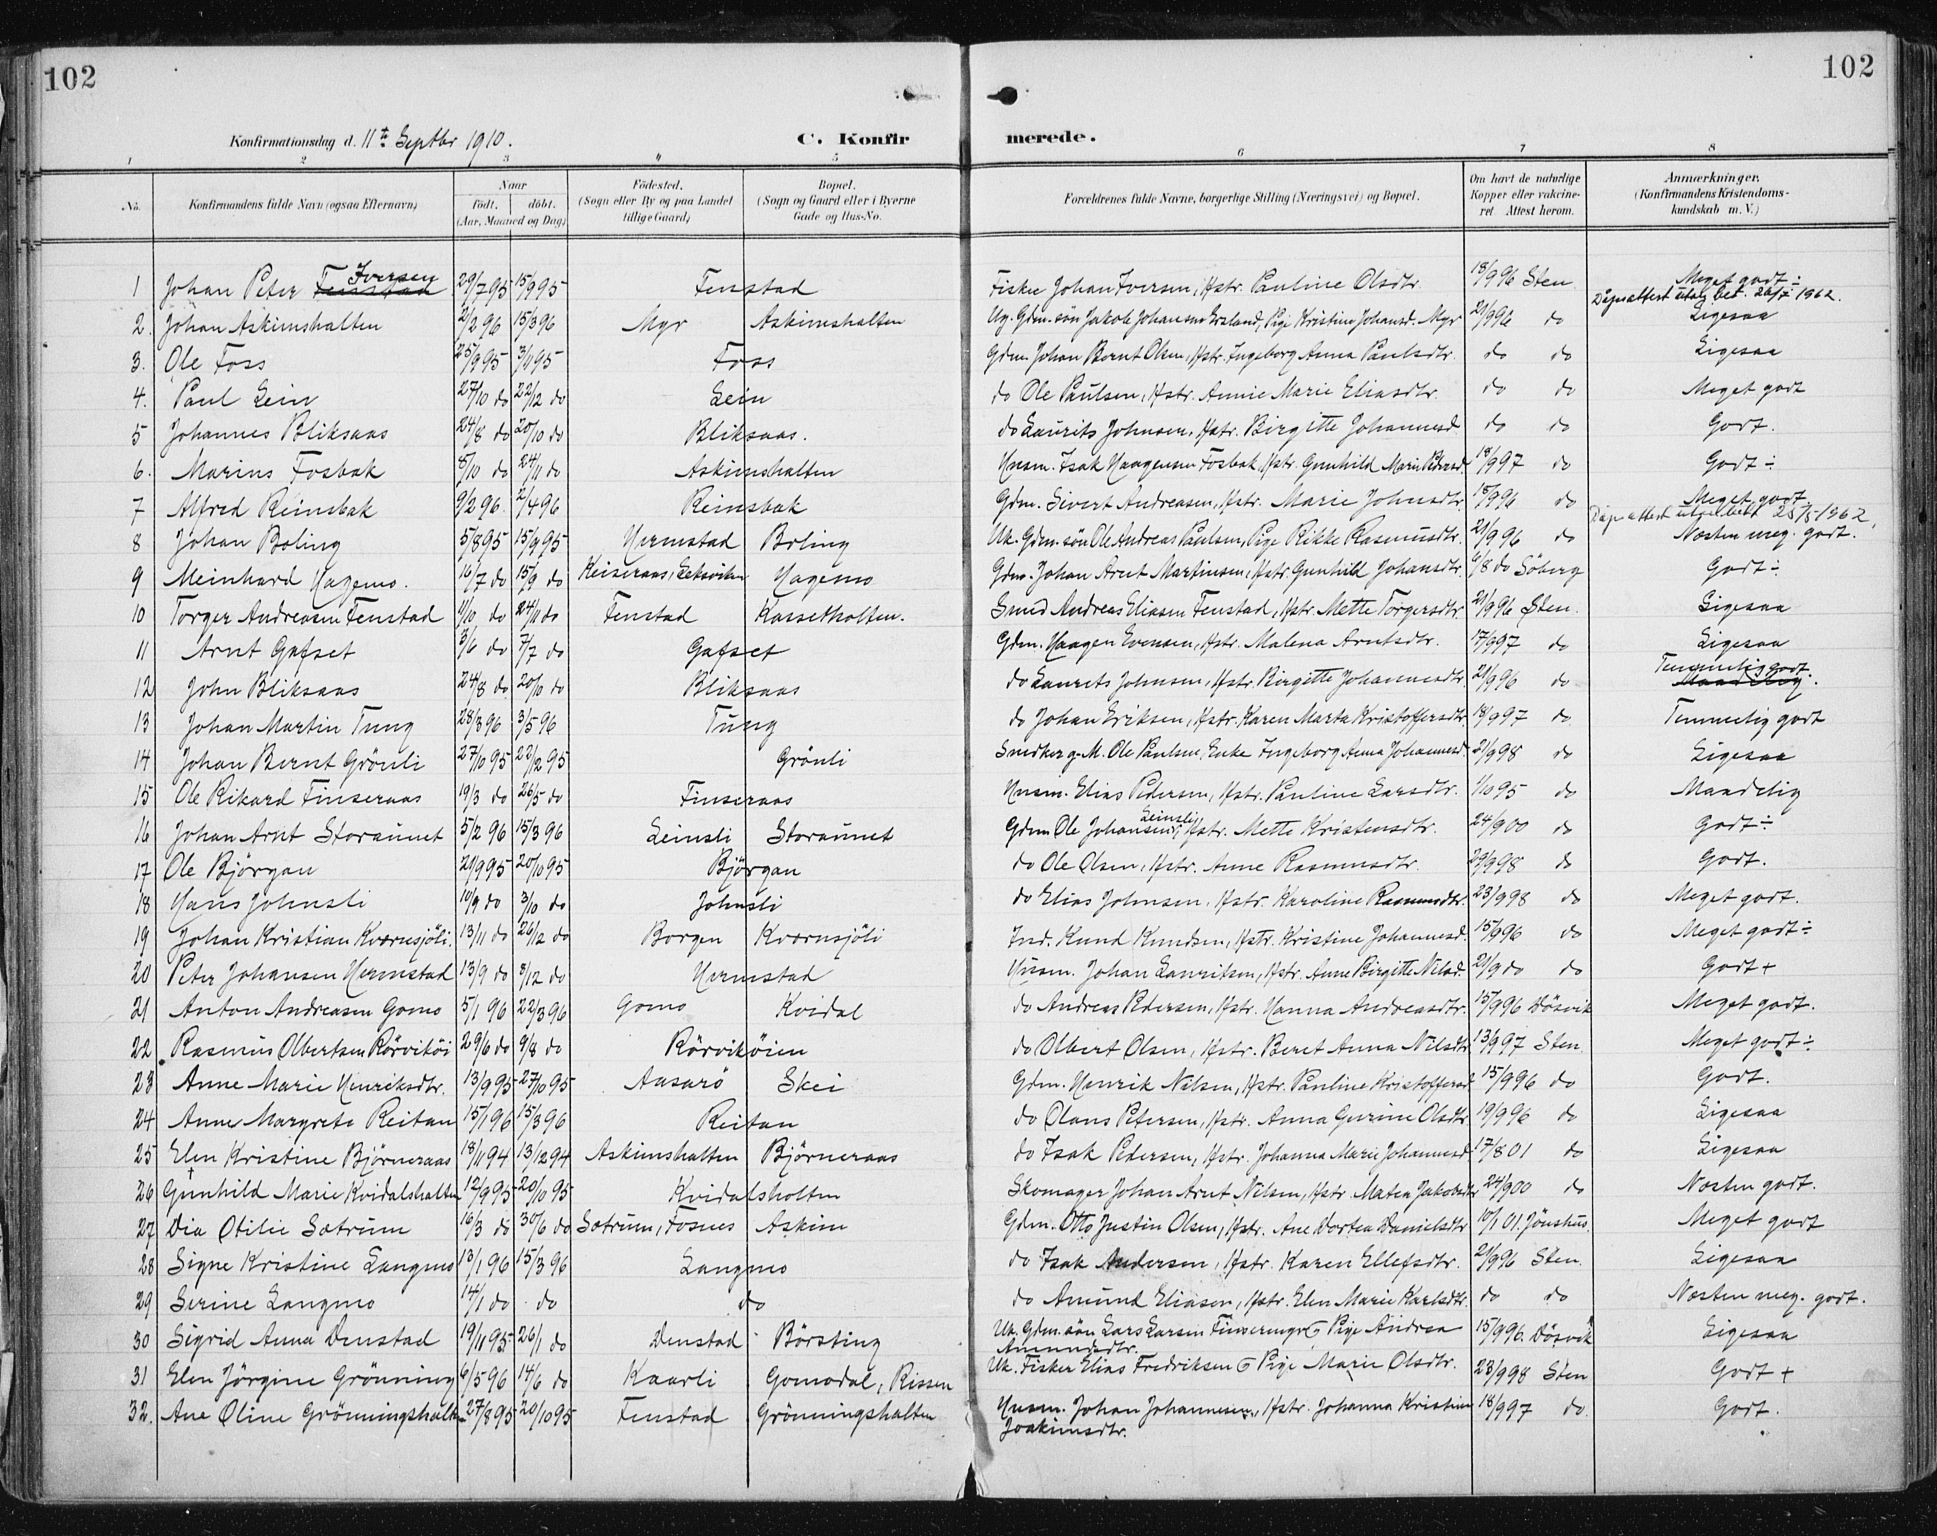 102
102
Konfirmationsdag d. 11te Septbr 1910.
C. Konfirmerede.
1 2 3 4 5 6 7 8
No. Konfirmandens fulde Navn (ogsaa Efternavn) Naar födt. döbt. (Aar, Maaned og Dag) Födested. (Sogn eller By og paa Landet tillige Gaard) Bopæl. (Sogn og Gaard eller i Byerne Gade og Hus-No. Forældrenes fulde Navne, borgerlige Stilling (Næringsvei) og Bopæl. Om havt de naturlige Kopper eller vakcineret. Attest herom. Anmærkninger. (Konfirmandens Kristendomskundskab m. V.)
1 Johan Peter Fenstad Iversen 29/7 95 15/9 95 Fenstad Fisker Johan Iversen, Hstr. Pauline Olsdtr. 18/9 96 Sten Meget godt ÷
Dåpsattest utst. bet. 26/7 1962.
2. Johan Askimshalten 2/2 96 15/3 96 Myr Askimshalten Ug. Gdm. sön Jakob Johansen Ersland, Pige Kristine Johansd. Myr 21/9 96 do Ligesaa
3. Ole Foss 25/9 95 3/11 95 Foss Gdm. Johan Bernt Olsen, Hstr. Ingeborg Anna Paulsdtr. do do Ligesaa
4. Paul Lein 27/10 do 22/12 do Lein do Ole Paulsen, Hstr. Annie Marie Eliasdtr. do do Meget godt
5 Johannes Bliksaas 24/8 do 20/10 do Bliksaas. do Laurits Johnsen, Hstr. Birgitte Johannesd. do do Godt.
6. Marius Fosbak 8/10 do 24/11 do Askimshalten Husm. Isak Haagensen Fosbak, Hstr. Gunhild Marie Pedersd. 18/9 97 do Godt ÷
7 Alfred Reinsbak 9/2 96 2/4 96 Reinsbak Gdm. Sivert Andreasen, Hstr. Marie Johnsdtr. 18/9 96 do Meget godt.
Dåpsattest utstedt 25/5-1962.
8 Johan Boling 5/8 95 15/9 95 Hermstad Boling Uk. Gdm. sön Ole Andreas Paulsen, Pige Rikke Rasmusdtr. 21/9 96 do Næsten meg. godt.
9 Meinhard Hagemo. 16/7 do 15/9 do Keiseraas, Leksviken Hagemo Gdm. Johan Arnt Martinsen, Hstr. Gunhild Johansdtr. 6/8 do Söberg Godt ÷
10 Torger Andreasen Fenstad 1/10 do 24/11 do Fenstad Kassetholten. Smed Andreas Eliasen Fenstad, Hstr. Mette Torgersdtr. 21/9 96 Sten. Ligesaa
11 Arnt Gafset 3/6 do 7/7 do Gafset Gdm. Haagen Evensen, Hstr. Malena Arntsdtr. 17/9 97 do Ligesaa
12 John Bliksaas 24/8 do 20/10 do Bliksaas do Laurits Johnsen, Hstr. Birgitte Johannesdtr. 21/9 96 do Temmelig godt. Maadelig.
13 Johan Martin Tung 28/3 96 3/5 96 Tung do Johan Eriksen, Hstr. Karen Marta Kristoffersdtr 18/9 97 do Temmelig godt
14 Johan Bernt Grönli 27/10 95 22/12 95 Grönli Ole Paulsen, Enke Ingeborg Anna Johannesd. 21/9 98 do Ligesaa
15 Ole Rikard Finseraas 19/3 do 26/5 do Finseraas Husm. Elias Pedersen, Hstr. Pauline Larsdtr. 1/10 95 do Maadelig
16 Johan Arnt Storaunet 5/2 96 15/3 96 Leinsli Storaunet Gdm Ole Johansen Leinsli, Hstr. Mette Kristensdtr. 24/9 00 do Godt ÷
17 Ole Björgan 21/9 95 20/10 95 Björgan do Ole Olsen, Hstr. Anne Rasmusdtr. 29/9 98 do Godt.
18 Hans Johnsli 10/9 do 3/10 do Johnsli do Elias Johnsen, Hstr. Karoline Rasmusdtr. 23/9 98 do Meget godt.
19 Johan Kristian Kvernsjöli. 13/11 do 26/12 do Borgen Kvernsjöli Ind. Knud Knudsen, Hstr. Kristine Johannesd. 15/9 96 do Meget godt ÷
20 Peter Johansen Hermstad 13/9 do 8/12 do Hermstad Husm. Johan Lauritsen, Hstr. Anne Birgitte Nilsd. 21/9 do do Godt +
21 Anton Andreasen Gomo 5/1 96 22/3 96 Gomo Kvidal do Andreas Pedersen, Hstr. Hanna Andreasdtr. 15/9 96 Dösvik Meget godt.
22 Rasmus Olbertsen Rörviköi 29/6 do 9/8 do Rörviköien do Olbert Olsen, Hstr. Beret Anna Nilsdtr 13/9 97 Sten. Meget godt ÷
23 Anne Marie Henriksdtr. 13/9 95 27/10 95 Aasarö Skei Gdm. Henrik Nilsen, Hstr. Pauline Kristoffersd 15/9 96 do Godt.
24 Anne Margrete Reitan 15/1 96 15/3 96 Reitan do Olaus Petersen, Hstr. Anna Gurine Olsdtr 19/9 96 do Ligesaa
25 Elen Kristine Björneraas 18/11 94 13/12 94 Askimshalten Björneraas do Isak Pedersen, Hstr. Johanna Marie Johannesd. 17/8 01 do Ligesaa
26 Gunhild Marie Kvidalshalten 12/9 95 20/10 95 Kvidalsholten Skomager Johan Arnt Nilsen, Hstr. Matea Jakobsdtr 24/9 00 do Næsten godt.
27 Dia Otilie Sætrum 16/3 do 30/6 do Sætrum, Fosnes Askim Gdm. Otto Justin Olsen, Hstr. Ane Dortea Danielsdtr 10/1 01. Jönshus. Meget godt
28 Signe Kristine Langmo 13/1 96 15/3 96 Langmo do Isak Andersen, Hstr. Karen Ellefsdtr. 21/9 96 Sten. Ligesaa
29 Serine Langmo 14/1 do do do do Amund Eliasen, Hstr. Elen Marie Karlsdtr. do do Næsten meg. godt.
30 Sigrid Anna Denstad 19/11 95 26/1 do Denstad Börsting Uk. Gdm. sön Lars Larsen Finsermyr & Pige Andrea Amundsdtr. 15/9 96. Dösvik Ligesaa
31 Elen Jörgine Grönning 6/5 96 14/6 do Kaarli Gomodal, Rissen Uk. Fisker Elias Fredriksen & Pige Marie Olsdtr. 23/9 98 Sten Godt +
32. Ane Oline Grönningshalten 27/8 95 20/10 95 Fenstad Grönningshalten Husm. Johan Johannesen, Hstr. Johanna Kristine Joakimsdtr. 18/9 97 do. Godt.